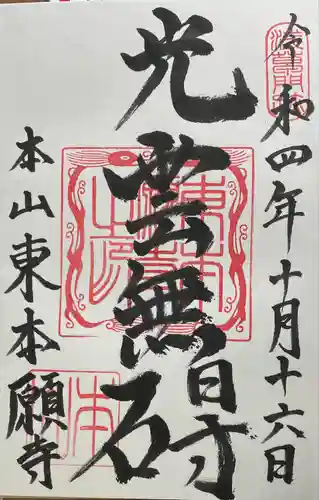 令和四年十月十六日
光雲無碍
本山東本願寺